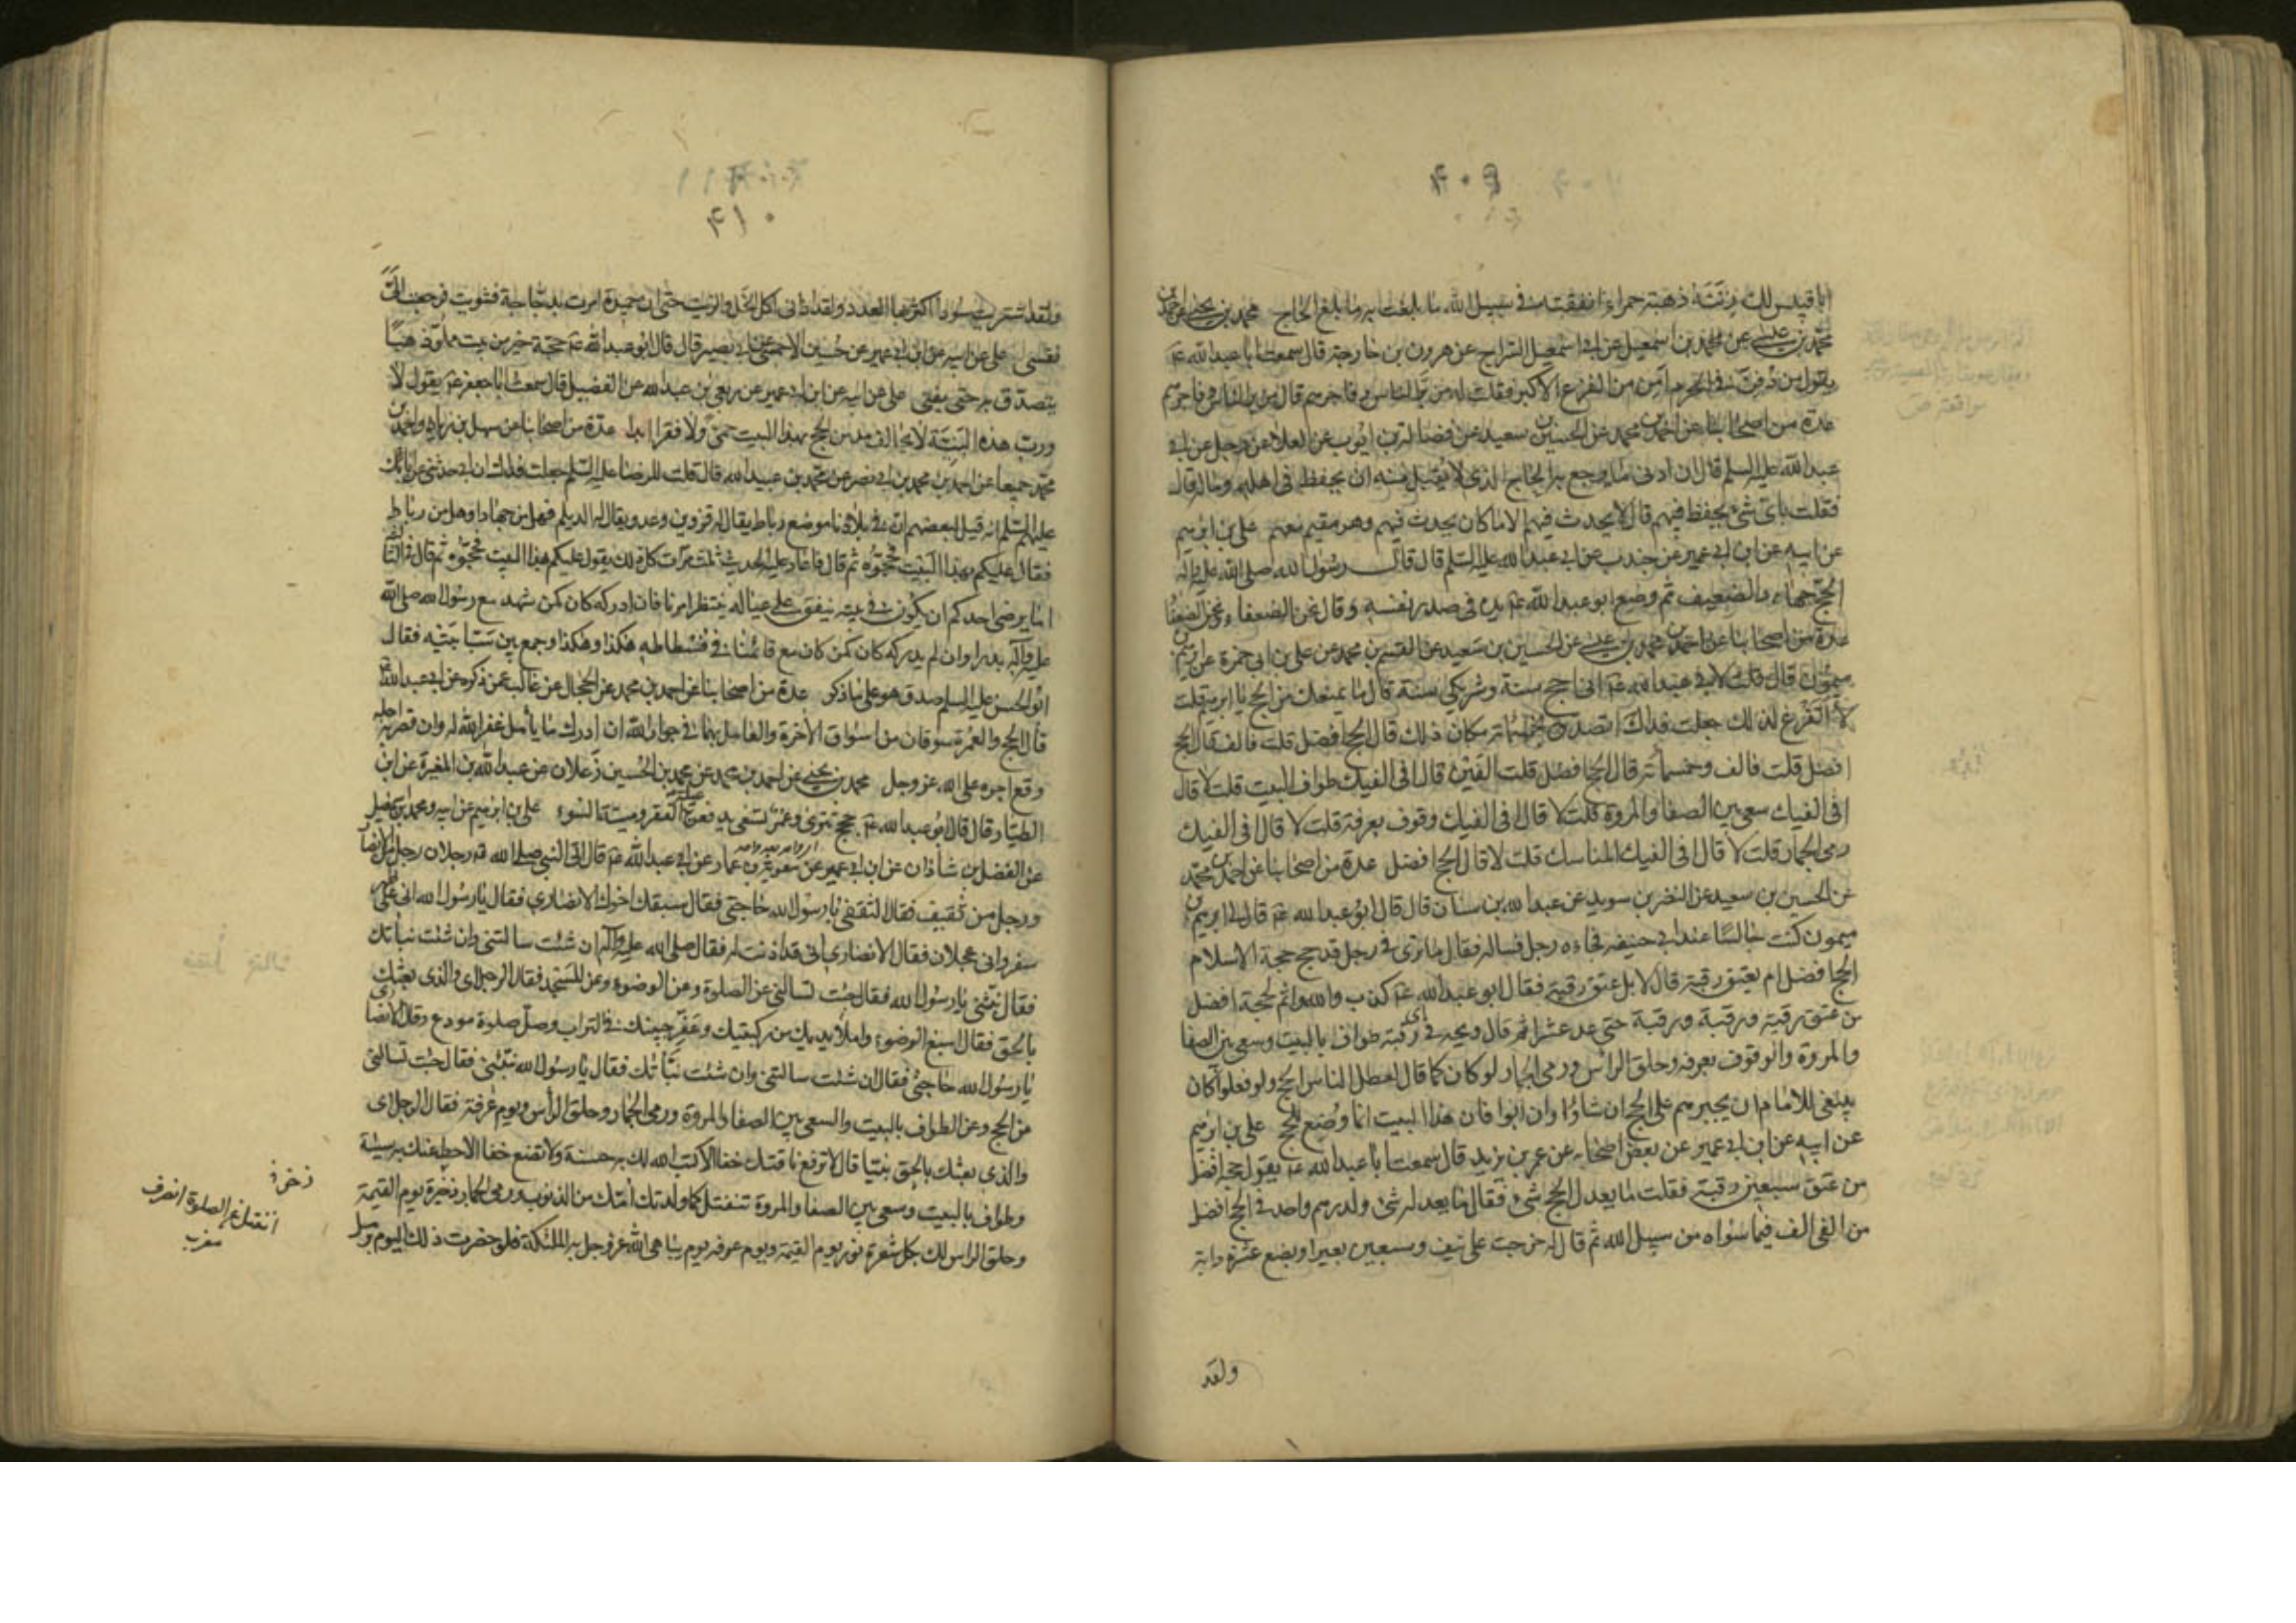 ۴۰۹
ابا قبيس لك زنته ذهبة حمراء انفقته في سبيل الله ما بلغت به ما بلغ الحاج محمد بن يحيى عن احمد بن
محمد بن عيسى عن محمد بن اسمعيل عن ابي اسمعيل السراج عن هرون بن خارجة قال سمعت ابا عبد الله ع
يقول من دفن في الحرم امن من الفزع الاكبر فقلت له من بر الناس وفاجرهم قال من بر الناس وفاجرهم
عدة من اصحابنا عن احمد بن محمد عن الحسين بن سعيد عن فضالة بن ايوب عن العلا عن رجل عن ابي
عبد الله عليه السلم قال ان ادنى ما يرجع به الحاج الذي لا يقبل منه ان يحفظ في اهله وماله قال
فقلت باي شيء يحفظ فيهم قال لا يحدث فيهم الا ما كان يحدث فيهم وهو مقيم معهم علي بن ابرهيم
عن ابيه عن ابن ابي عمير عن جندب عن ابي عبد الله عليه السلم قال قال رسول الله صلى الله عليه واله
الحج جهاد الضعيف ثم وضع ابو عبد الله ع يده في صدر نفسه وقال نحن الضعفاء ونحن الضعفا
عدة من اصحابنا عن احمد بن محمد بن عيسى عن الحسين بن سعيد عن القسم بن محمد عن علي بن ابي حمزة عن ابرهيم بن
ميمون قال قلت لابي عبد الله ع اني احج سنة وشريكي سنة قال ما يمنعك من الحج يا ابرهيم قلت
لا اتفرغ لذلك جعلت فداك اتصدق بخمسمائة مكان ذلك قال الحج افضل قلت فالف قال الحج
افضل قلت فالف وخمسمأة قال الحج افضل قلت الفين قال افي الفيك طواف البيت قلت لا قال
افي الفيك سعي بين الصفا والمروة قلت لا قال افي الفيك وقوف بعرفة قلت لا قال افي الفيك
رمي الجمار قلت لا قال افي الفيك المناسك قلت لا قال الحج افضل عدة من اصحابنا عن احمد بن محمد
عن الحسين بن سعيد عن النضر بن سويد عن عبد الله بن سنان قال قال ابو عبد الله ع قال لي ابرهيم بن
ميمون كنت جالسا عند ابي حنيفه فجاءه رجل فساله فقال ما ترى في رجل قد حج حجة الاسلام
الحج افضل ام يعتق رقبة قال لا بل عتق رقبة فقال ابو عبد الله ع كذب والله واثم لحجة افضل
من عتق رقبة ورقبة ورقبة حتى عد عشرا ثم قال ويحه في اي رقبة طواف بالبيت وسعي بين الصفا
والمروة والوقوف بعرفه وحلق الراس ورمي الجمار لو كان كما قال لعطل الناس الحج ولو فعلوا كان
ينبغي للامام ان يجبرهم على الحج ان شاؤا وان ابوا فان هذا البيت انما وضع للحج علي بن ابرهيم
عن ابيه عن ابن ابي عمير عن بعض اصحابه عن عمر بن يزيد قال سمعت ابا عبد الله ع يقول حجة افضل
من عتق سبعين رقبة فقلت ما يعدل الحج شيء فقال ما يعدله شيء ولدرهم واحد في الحج افضل
من الفي الف فيما سواه من سبيل الله ثم قال له خرجت على نيف وسبعين بعيرا وبضع عشرة دابة
ولقد
۴۱۰
ولقد اشتريت سودا اكثر بها العدد ولقد اذاني اكل الخل والزيت حتى ان حميدة امرت بدجاجة فشويت فرجعت الى
نفسي علي عن ابيه عن ابن ابي عمير عن حسين الاحمسي عن ابي بصير قال قال ابو عبد الله ع حجة خير من بيت مملو ذهبا
يتصدق به حتى يفنى علي عن ابيه عن ابن ابي عمير عن ربعي بن عبد الله عن الفضيل قال سمعت ابا جعفر ع يقول لا
ورب هذه البنية لا يحالف مدمن الحج بهذا البيت حمى ولا فقر ابدا عدة من اصحابنا عن سهل بن زياد واحمد بن
محمد جميعا عن احمد بن محمد بن ابي نصر عن محمد بن عبيد الله قال قلت للرضا عليه السلم جعلت فداك ان ابي حدثني عن ابائك
عليهم السلم انه قيل لبعضهم ان في بلادنا موضع رباط يقال له قزوين وعدو يقال له الديلم فهل من جهاد او هل من رباط
فقال عليكم بهذا البيت فحجوه ثم قال فاعاد عليه الحديث ثلث مرات كل ذلك يقول عليكم بهذا البيت فحجوه ثم قال في الثا لثة
اما يرضى احدكم ان يكون في بيته ينفق على عياله ينتظر امرنا فان ادركه كان كمن شهد مع رسول الله صلى الله
عليه واله بدرا وان لم يدركه كان كمن كان مع قائمنا في فسطاطه هكذا وهكذا وجمع بين سبابتيه فقال
ابو الحسن عليه السلم صدق هو على ما ذكر عدة من اصحابنا عن احمد بن محمد عن الحجال عن غالب عمن ذكره عن ابي عبد الله ع
قال الحج والعمرة سوقان من اسواق الاخرة والعامل بهما في جوار الله ان ادرك ما يأمل غفر الله له وان قصر به اجله
وقع اجره على الله عز وجل محمد بن يحيى عن احمد بن محمد عن محمد بن الحسين زعلان عن عبد الله بن المغيرة عن ابن
الطيار قال قال ابو عبد الله ع حجج تترى وعمر تسعى يدفعن عيلة الفقر وميتة السوء علي بن ابرهيم عن ابيه ومحمد بن اسمعيل
عن الفضل بن شاذان عن ابن ابي عمير عن معوية بن عمار عن ابي عبد الله ع قال اتى النبي صلى الله عليه رجلان رجل من الانصار
ورجل من ثقيف فقال الثقفي يا رسول الله حاجتي فقال سبقك اخوك الانصاري فقال يا رسول الله اني على ظهر
سفر واني عجلان فقال الانصاري اني قد اذنت له فقال صلى الله عليه واله ان شئت سالتني وان شئت نبأتك
فقال نبئني يا رسول الله فقال جئت تسالني عن الصلوة وعن الوضوء وعن المسجد فقال الرجل اي والذي بعثك
بالحق فقال اسبغ الوضوء واملأ يديك من ركبتيك وعفر جبينك في التراب وصل صلوة مودع وقال الانصاري
يا رسول الله حاجتي فقال ان شئت سالتني وان شئت نبأتك فقال يا رسول الله نبئني فقال جئت تسالني
عن الحج وعن الطواف بالبيت والسعي بين الصفا والمروة ورمي الجمار وحلق الرأس ويوم عرفة فقال الرجل اي
والذي بعثك بالحق نبيا قال لا ترفع ناقتك خفا الا كتب الله لك به حسنة ولا تضع خفا الا حط عنك به سيئة
وطواف بالبيت وسعي بين الصفا والمروة تنفتل كما ولدتك امك من الذنوب ورمي الجمار ذخيرة يوم القيمة
وحلق الراس لك بكل شعرة نور يوم القيمة ويوم عرفه يوم يباهي الله عز وجل به الملئكة فلو حضرت ذلك اليوم برمل
ذخر
انفتل عن الصلوة انصرف
مغرب